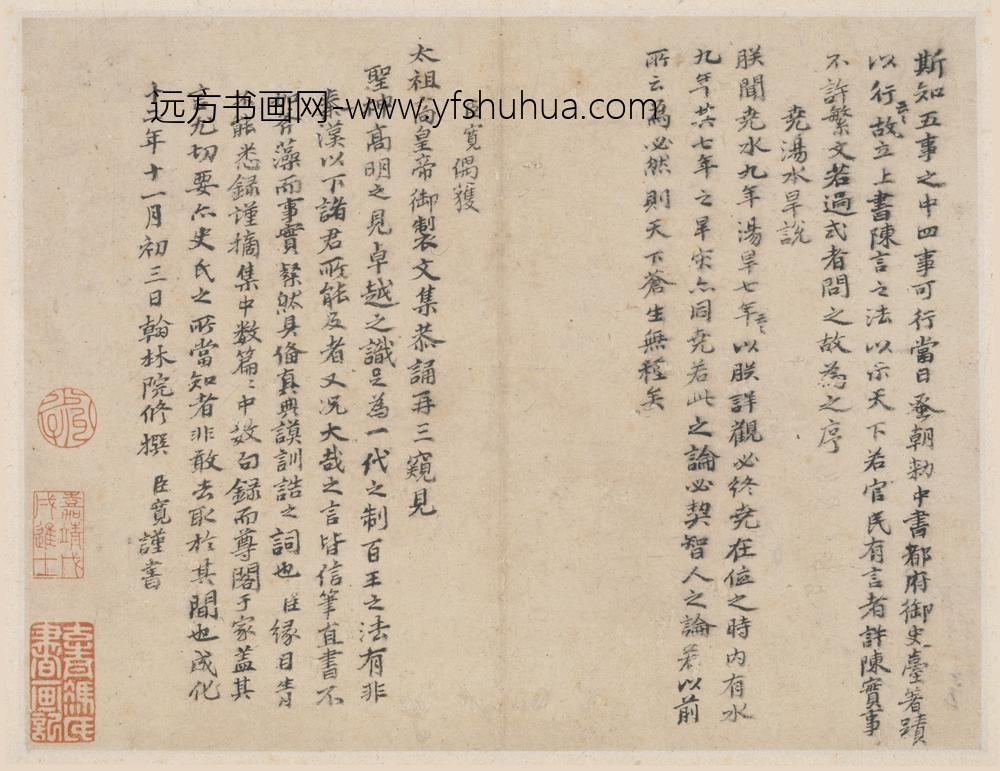 斯知五事之中四事可行當日蚤朝勑中書都府御史臺著蹟
以行故云云立上書陳言之法以示天下若官民有言者許陳實事
不許繁文若過式者問之故為之序
堯湯水旱說
朕聞堯水九年湯旱七年云云以朕詳觀必終堯在位之時內有水
九年其七年之旱宋亦同堯若此之論必契智人之論若以前
所云為必然則天下蒼生無種矣
臣寬偶獲
太祖高皇帝御製文集恭誦再三窺見
聖神高明之見卓越之識足為一代之制百王之法有非
秦漢以下諸君所能及者又況大哉之言皆信筆直書不
藻而事實粲然具備真典謨訓誥之詞也臣緣目眚
能悉錄謹摘集中數篇篇中數句錄而尊閣于家蓋其
尤切要亦史氏之所當知者非敢去取於其間也成化
年十一月初三日翰林院修撰 臣寬謹書
远方书画网-www.yfshuhua.com
嘉靖戊戌進士